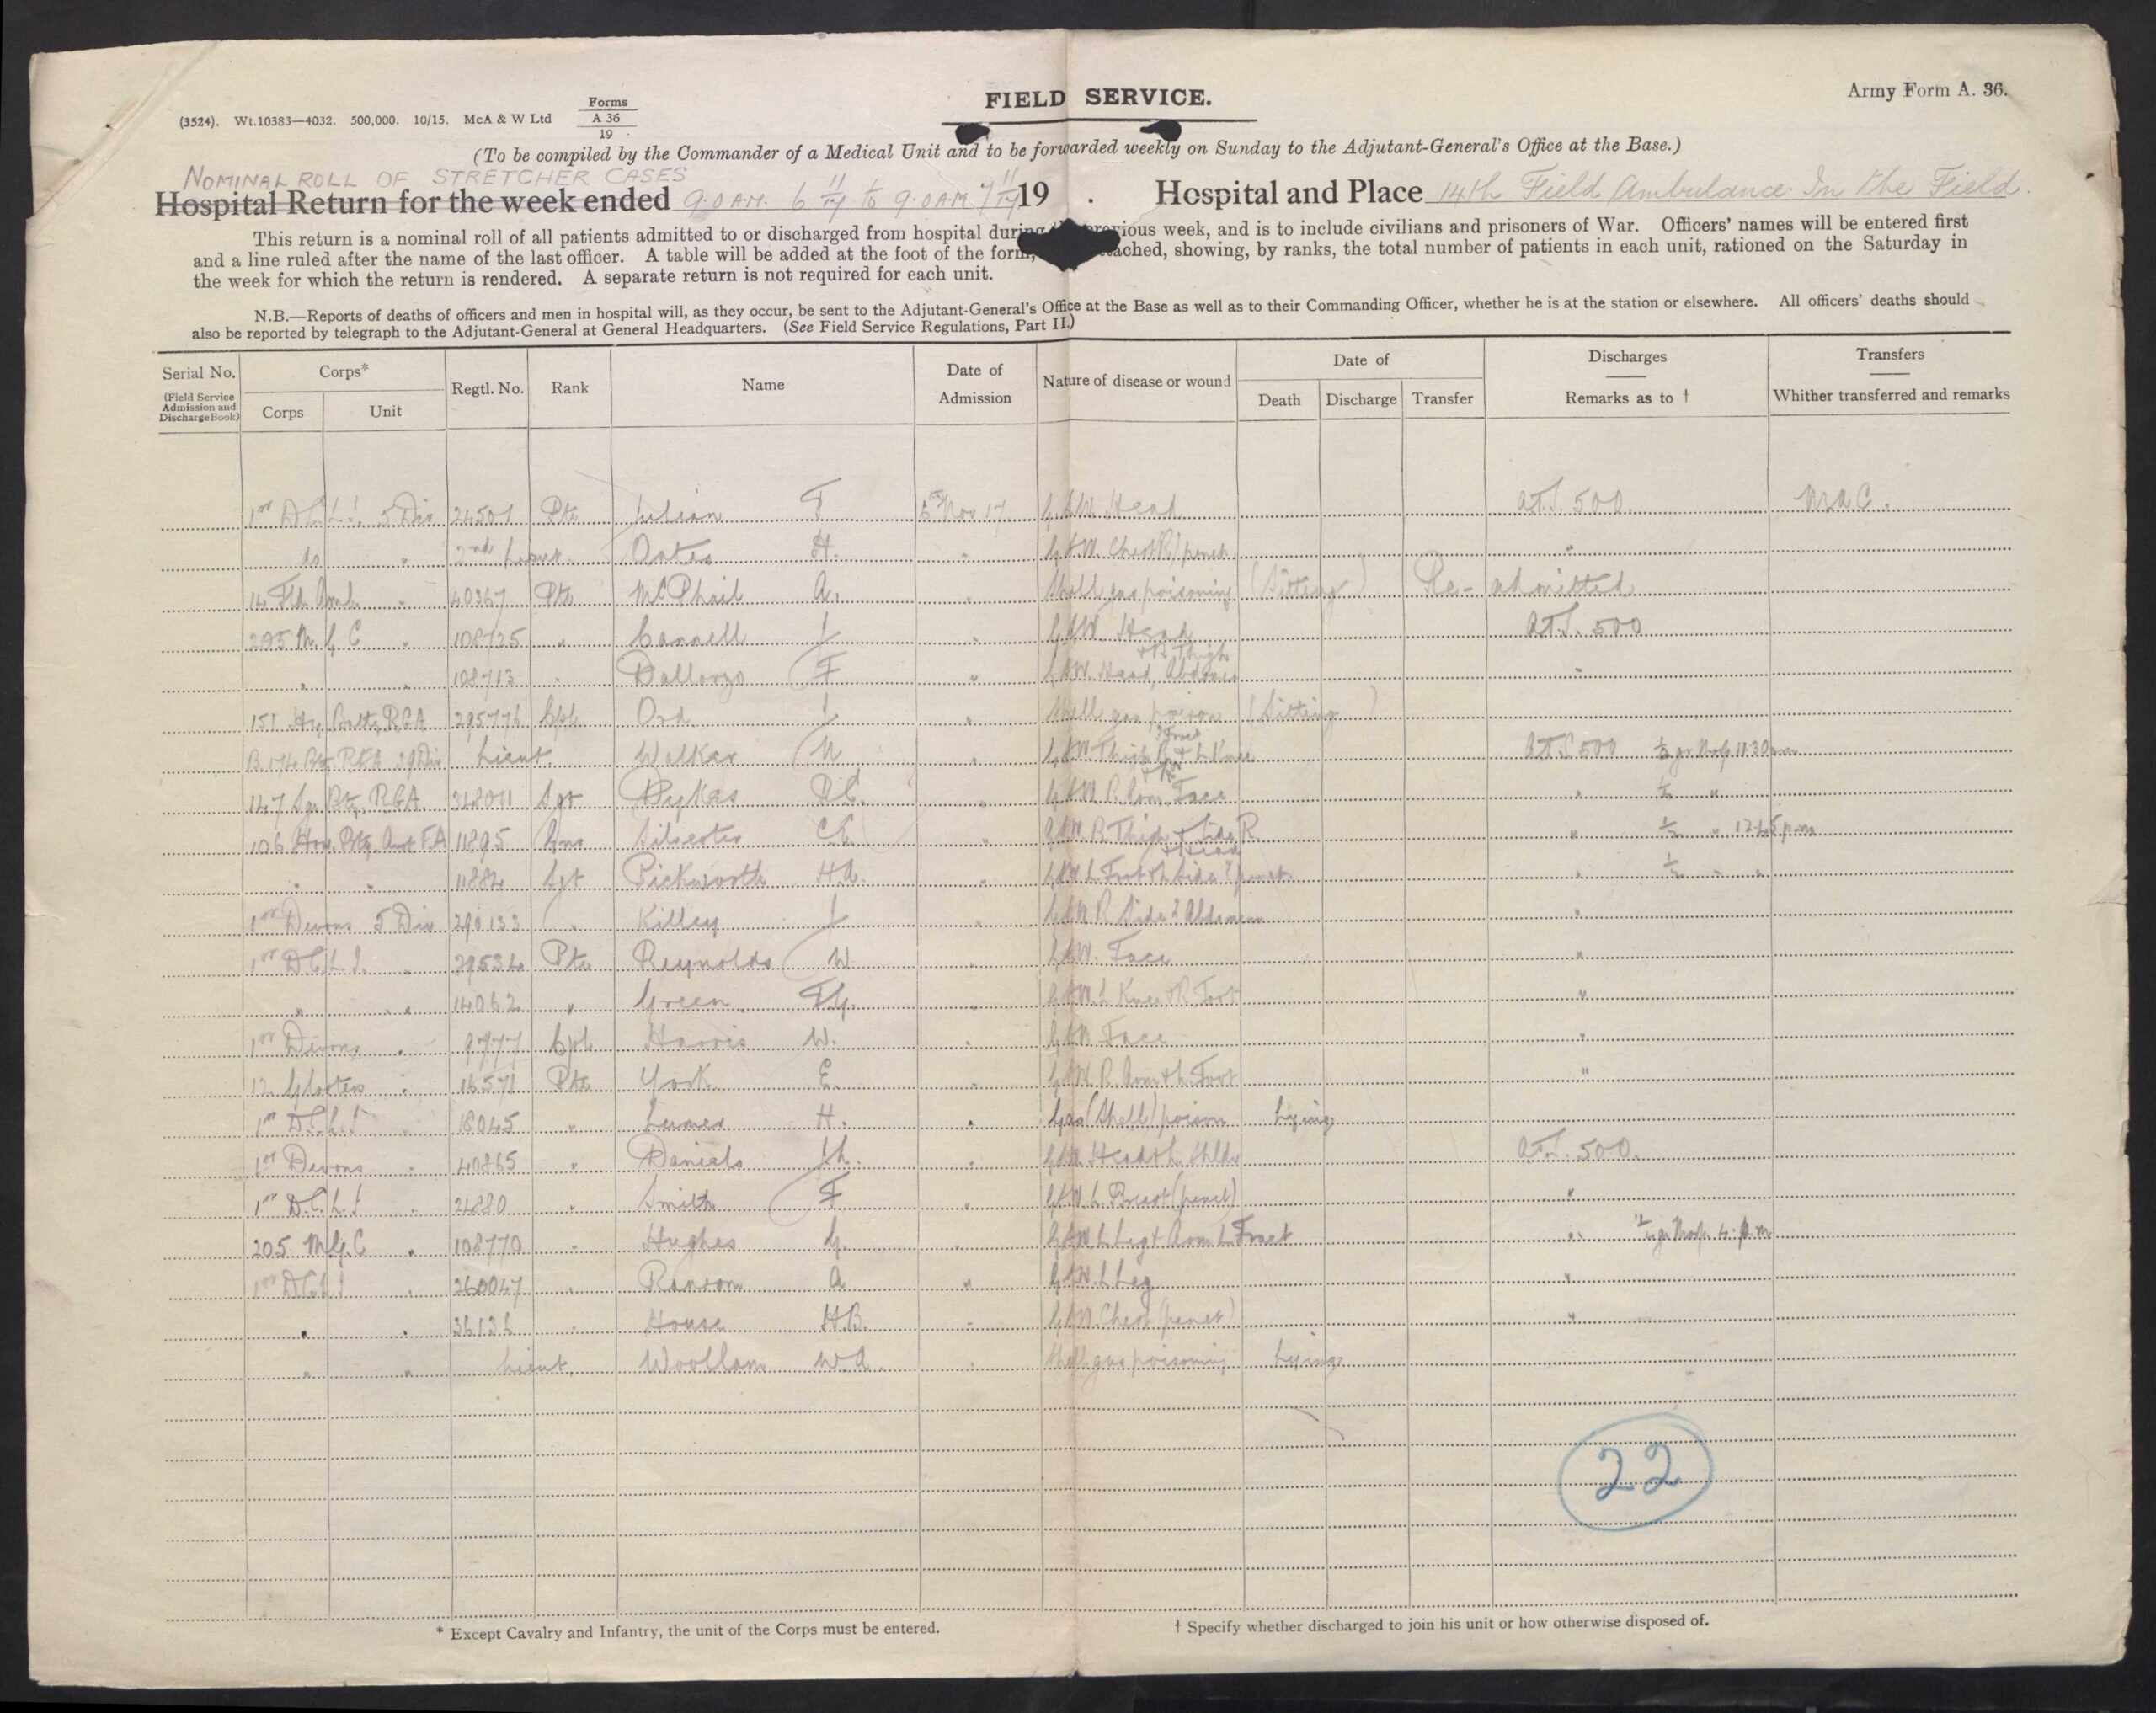 FIELD SERVICE.
Army Form A. 36.
(3524). Wt.10383—4032. 500,000. 10/15. McA & W Ltd Forms A 36 19
(To be compiled by the Commander of a Medical Unit and to be forwarded weekly on Sunday to the Adjutant-General's Office at the Base.)
NOMINAL ROLL OF STRETCHER CASES
Hospital Return for the week ended 9.0 A.M. 6 11/17 to 9.0 A.M 7 11/17 19 . Hospital and Place 14th Field Ambulance In the Field.
This return is a nominal roll of all patients admitted to or discharged from hospital during previous week, and is to include civilians and prisoners of War. Officers' names will be entered first
and a line ruled after the name of the last officer. A table will be added at the foot of the form, showing, by ranks, the total number of patients in each unit, rationed on the Saturday in
the week for which the return is rendered. A separate return is not required for each unit.
N.B.—Reports of deaths of officers and men in hospital will, as they occur, be sent to the Adjutant-General's Office at the Base as well as to their Commanding Officer, whether he is at the station or elsewhere. All officers' deaths should
also be reported by telegraph to the Adjutant-General at General Headquarters. (See Field Service Regulations, Part II.)
Serial No. (Field Service Admission and Discharge Book) Corps* Corps Unit Regtl. No. Rank Name Date of Admission Nature of disease or wound Date of Death Discharge Transfer Discharges Remarks as to † Transfers Whither transferred and remarks
1st D.C.L.I. 5 Div 24501 Pte Julian F Nov 17 G.S.W. Head A.T.S. 500. M A C.
do " 2nd Lieut. Oates H. " G.S.W. Chest R penet "
14 Fld Amb. " 40367 Pte McPhail A. " Shell gas poisoning (Sitting) Re-admitted
205 M.G.C " 108725 " Cannell J " G.S.W. Head A.T.S. 500
" " 108713 " F " G.S.W. Head, Abdomen + R. Thigh "
151 Hy Batty RGA 295776 Cpl Ord J " Shell gas poison (Sitting)
RFA Lieut. Walker N " G.S.W. Thigh R Fract + L Knee A.T.S. 500 ½ gr Morp 11.30
147 Sge Bty RGA 348011 Sgt Dykes " G.S.W. R Arm, Face " ½ "
106 How. Bty Aust FA 11895 Gnr Silvester " G.S.W. R Thigh + Side R " ½ " 12.45 pm
" " 11884 Sgt Pickworth H.A. " G.S.W. L Foot + L Side ? penet + Head " ½ " "
1st Devons 5 Div 290133 " Killey J " G.S.W. R Side ? Abdomen "
1st D.C.L.I. " 29534 Pte Reynolds W " G.S.W. Face "
" " 14062 " Green F.G. " G.S.W. L Knee + R Foot "
1st Devons " 9777 Cpl Harris W. " G.S.W Face "
12 Glosters " 16571 Pte York E. " G.S.W. R Arm + L Foot "
1st D.C.L.I " 18045 " H. " Gas (Shell) poison Lying
1st Devons " 40865 " Daniels " G.S.W. Head + L. Shldr A.T.S. 500.
1st D.C.L.I " 24880 " Smith F " G.S.W. L Breast (penet) "
205 M.G.C " 108770 " Hughes G. " G.S.W. L Leg + Arm L Fract " ½ gr Morp 4. p.m
1st DCLI " 260047 " Ransom A " G.S.W. L Leg "
" " 36136 " House H.B. " G.S.W. Chest (penet) "
" " Lieut. Woollam W.A. " Shell gas poisoning Lying
22
* Except Cavalry and Infantry, the unit of the Corps must be entered.
† Specify whether discharged to join his unit or how otherwise disposed of.